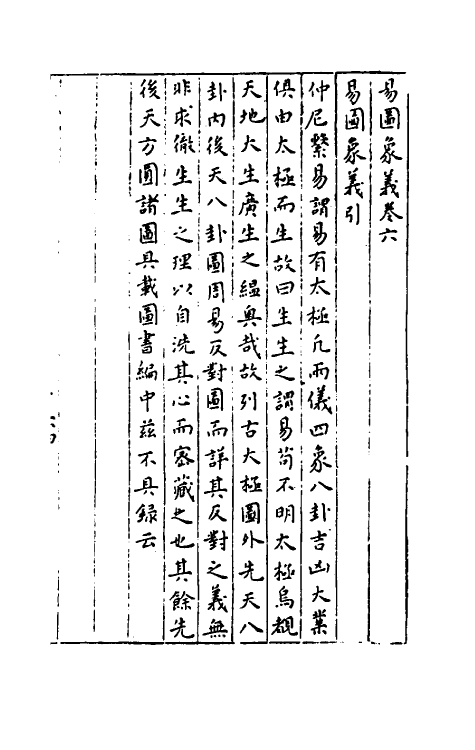 易圖象義卷六
易圖象義引
仲尼繫易謂易有太極凡兩儀四象八卦吉凶大業
俱由太極而生故曰生生之謂易苟不明太極烏覩
天地大生廣生之緼奥哉故列古太極圖外先天八
卦内後天八卦圖周易反對圖而詳其反對之義無
非求徹生生之理以自洗其心而密藏之也其餘先
後天方圓諸圖具載圖書編中兹不具録云